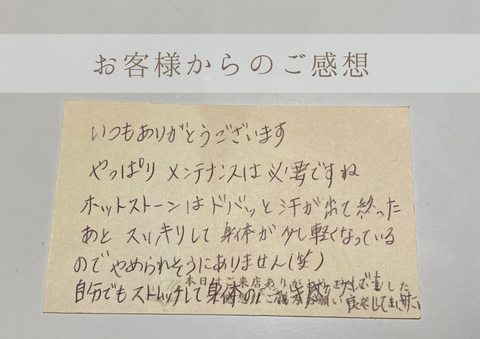 お客様からのご感想
いつもありがとうございます
やっぱり メンテナンスは必要ですね
ホットストーンはドバッと汗が出て終った
あと スッキリして身体が少し軽くなっている
のでやめられそうにありません(笑)
本日はご来店あり
自分でもストレッチして身体の